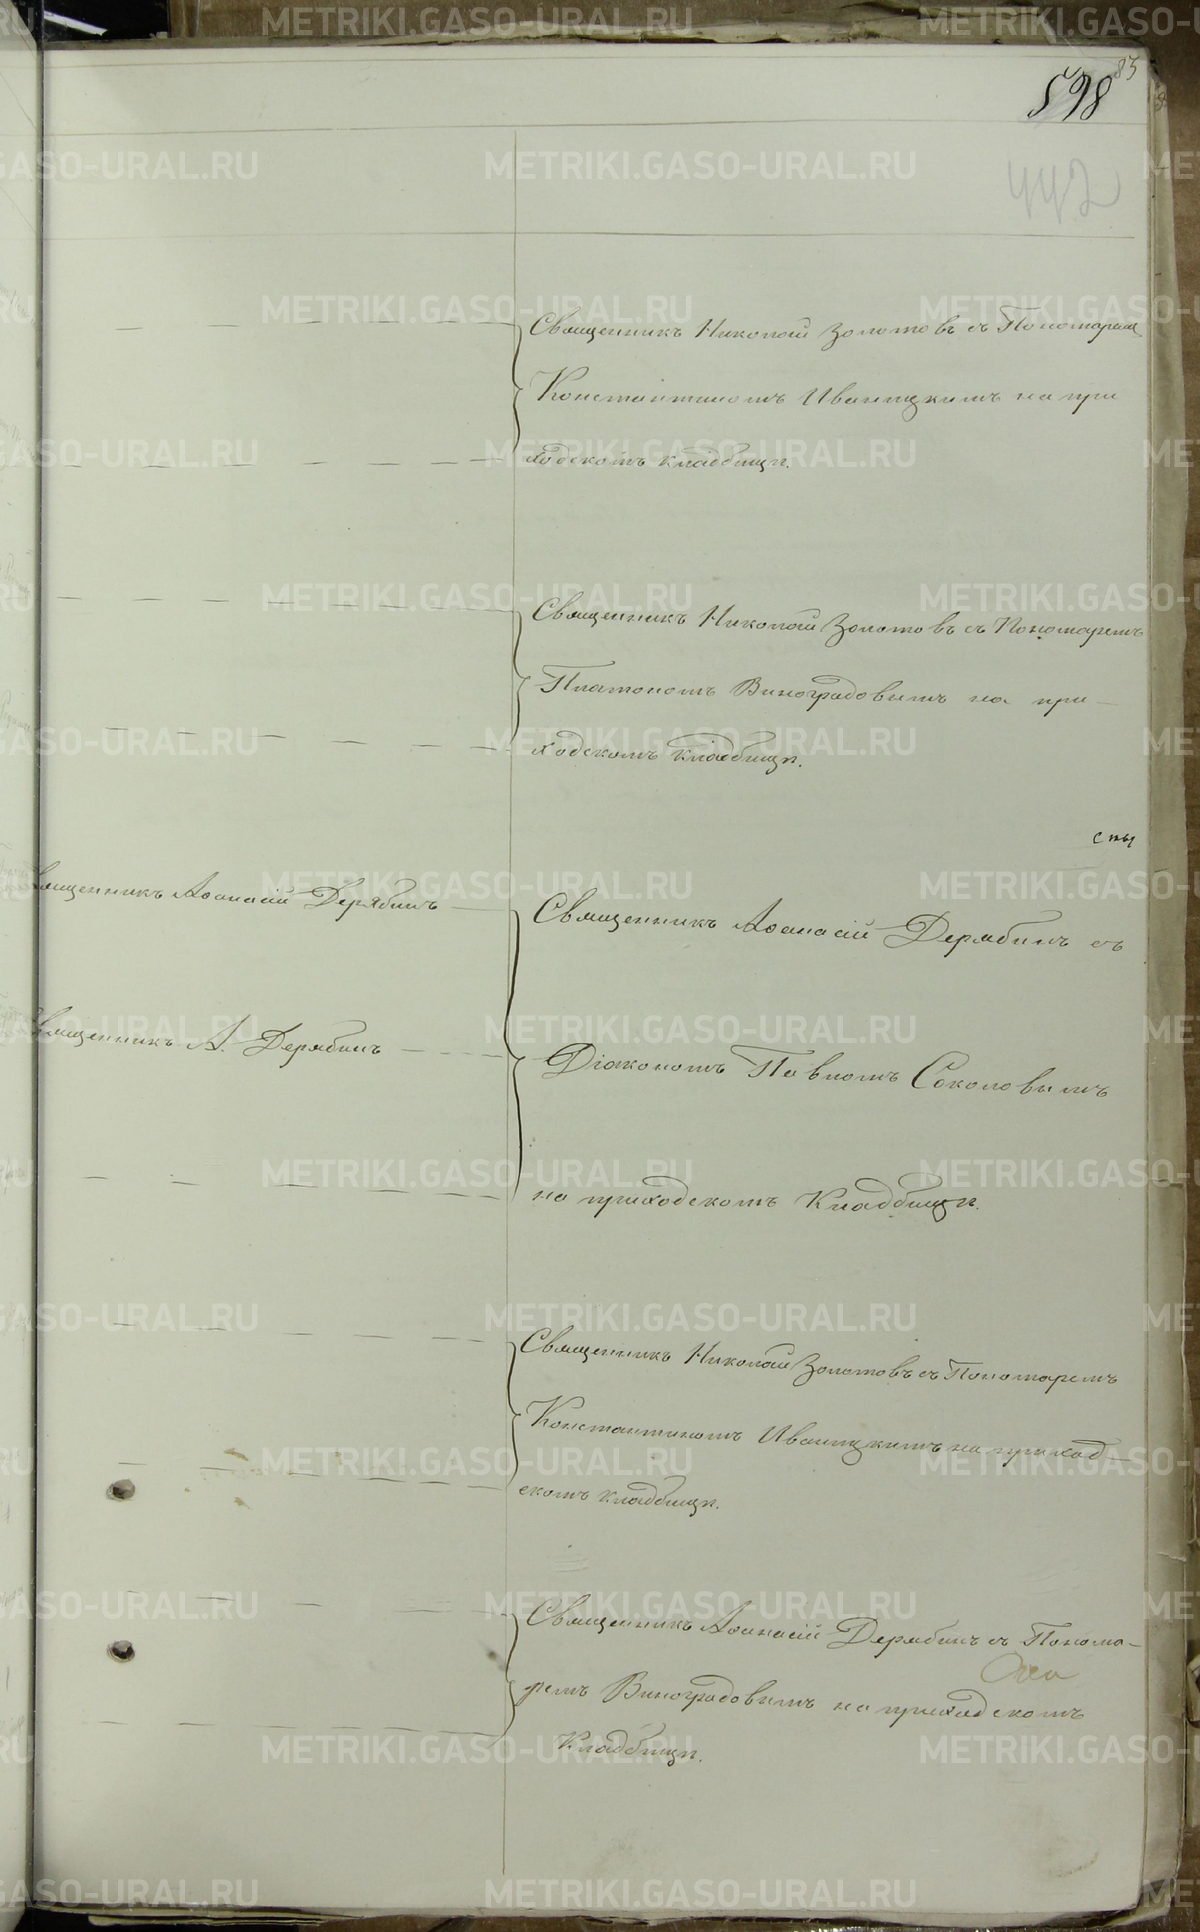 83
598
442
Священникъ Николай Золотовъ съ Пономаремъ
Константиномъ Иваницкимъ на при
ходскомъ кладбищѣ.
Священникъ Николай Золотовъ съ Пономаремъ
Платономъ Виноградовымъ на при-
ходскомъ кладбищѣ.
Священникъ Аѳанасій Дерябинъ
Священникъ Аѳанасій Дерябинъ съ
Священникъ А. Дерябинъ
Діакономъ Павломъ Соколовымъ
на приходскомъ Кладбищѣ.
Священникъ Николай Золотовъ съ Пономаремъ
Константиномъ Иваницкимъ на приход-
скомъ кладбищѣ.
Священникъ Аѳанасій Дерябинъ съ Понома-
ремъ Виноградовымъ на приходскомъ
Кладбищѣ.
METRIKI.GASO-URAL.RU